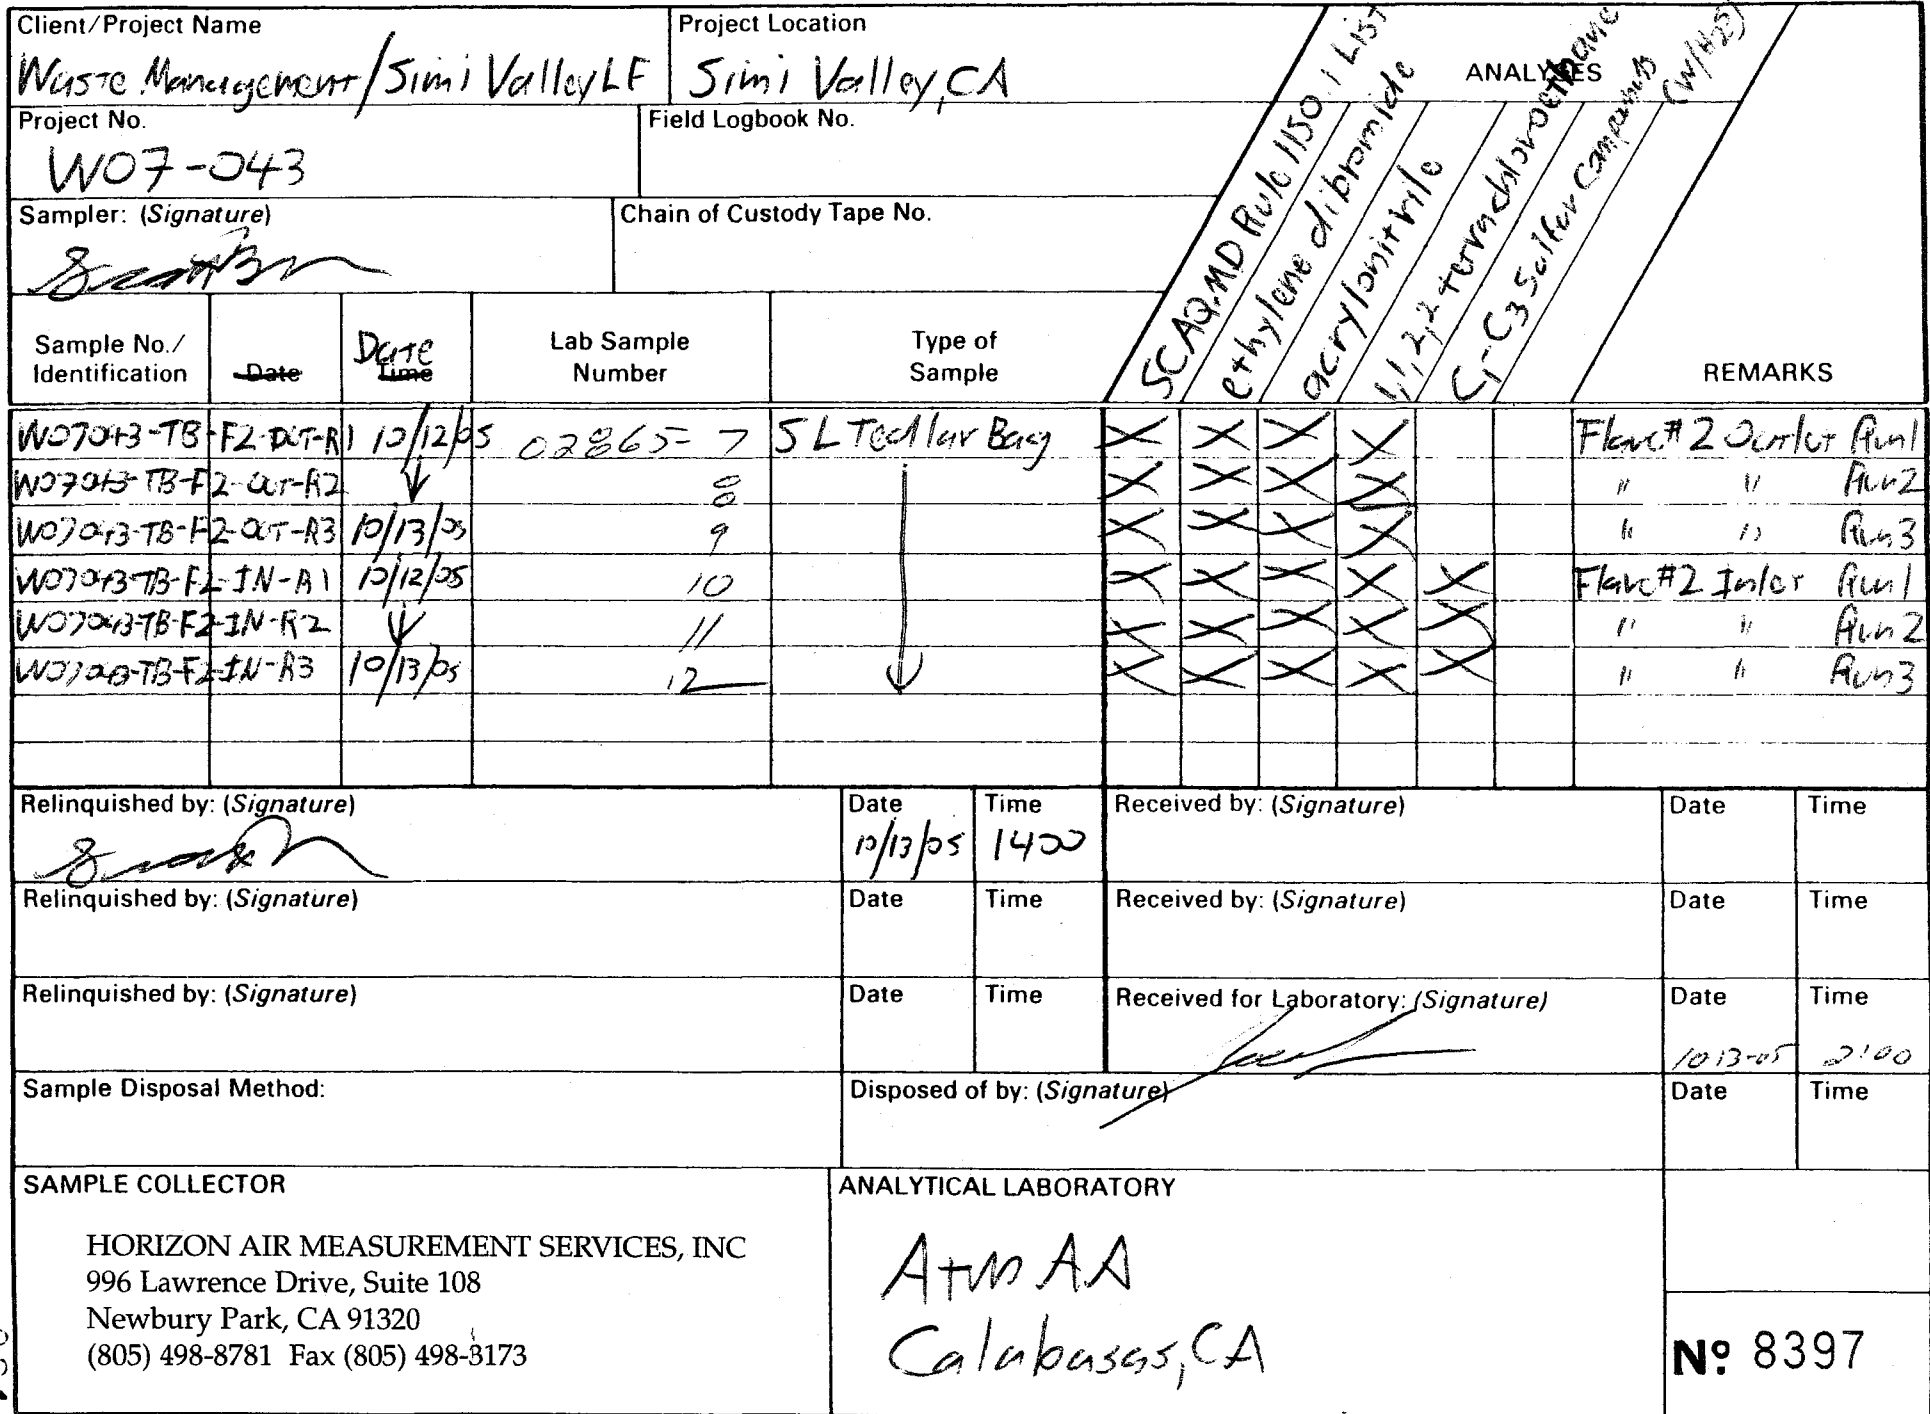 Client/Project Name
Waste Management/Simi Valley LF
Project Location
Simi Valley, CA
ANALYSES
SCAQMD Rule 1150.1 List
ethylene dibromide
acrylonitrile
1,1,2,2 tetrachloroethane
C1-C3 Sulfur Compounds (w/H2S)
Project No.
W07-043
Field Logbook No.
Sampler: (Signature)
Chain of Custody Tape No.
Sample No./ Identification
Date
Date Time
Lab Sample Number
Type of Sample
REMARKS
W07043-TB-F2-OUT-R1 10/12/05 02865-7 5 L Tedlar Bag X X X X Flare #2 Outlet Run1
W07043-TB-F2-OUT-R2 ↓ 8 X X X X " " Run2
W07043-TB-F2-OUT-R3 10/13/05 9 X X X X " " Run3
W07043-TB-F2-IN-R1 10/12/05 10 X X X X X Flare #2 Inlet Run1
W07043-TB-F2-IN-R2 ↓ 11 X X X X X " " Run2
W07043-TB-F2-IN-R3 10/13/05 12 X X X X X " " Run3
Relinquished by: (Signature)
Date 10/13/05
Time 1400
Received by: (Signature)
Date
Time
Relinquished by: (Signature)
Date
Time
Received by: (Signature)
Date
Time
Relinquished by: (Signature)
Date
Time
Received for Laboratory: (Signature)
Date 10-13-05
Time 2:00
Sample Disposal Method:
Disposed of by: (Signature)
Date
Time
SAMPLE COLLECTOR
HORIZON AIR MEASUREMENT SERVICES, INC
996 Lawrence Drive, Suite 108
Newbury Park, CA 91320
(805) 498-8781 Fax (805) 498-3173
ANALYTICAL LABORATORY
AtmAA
Calabasas, CA
Nº 8397